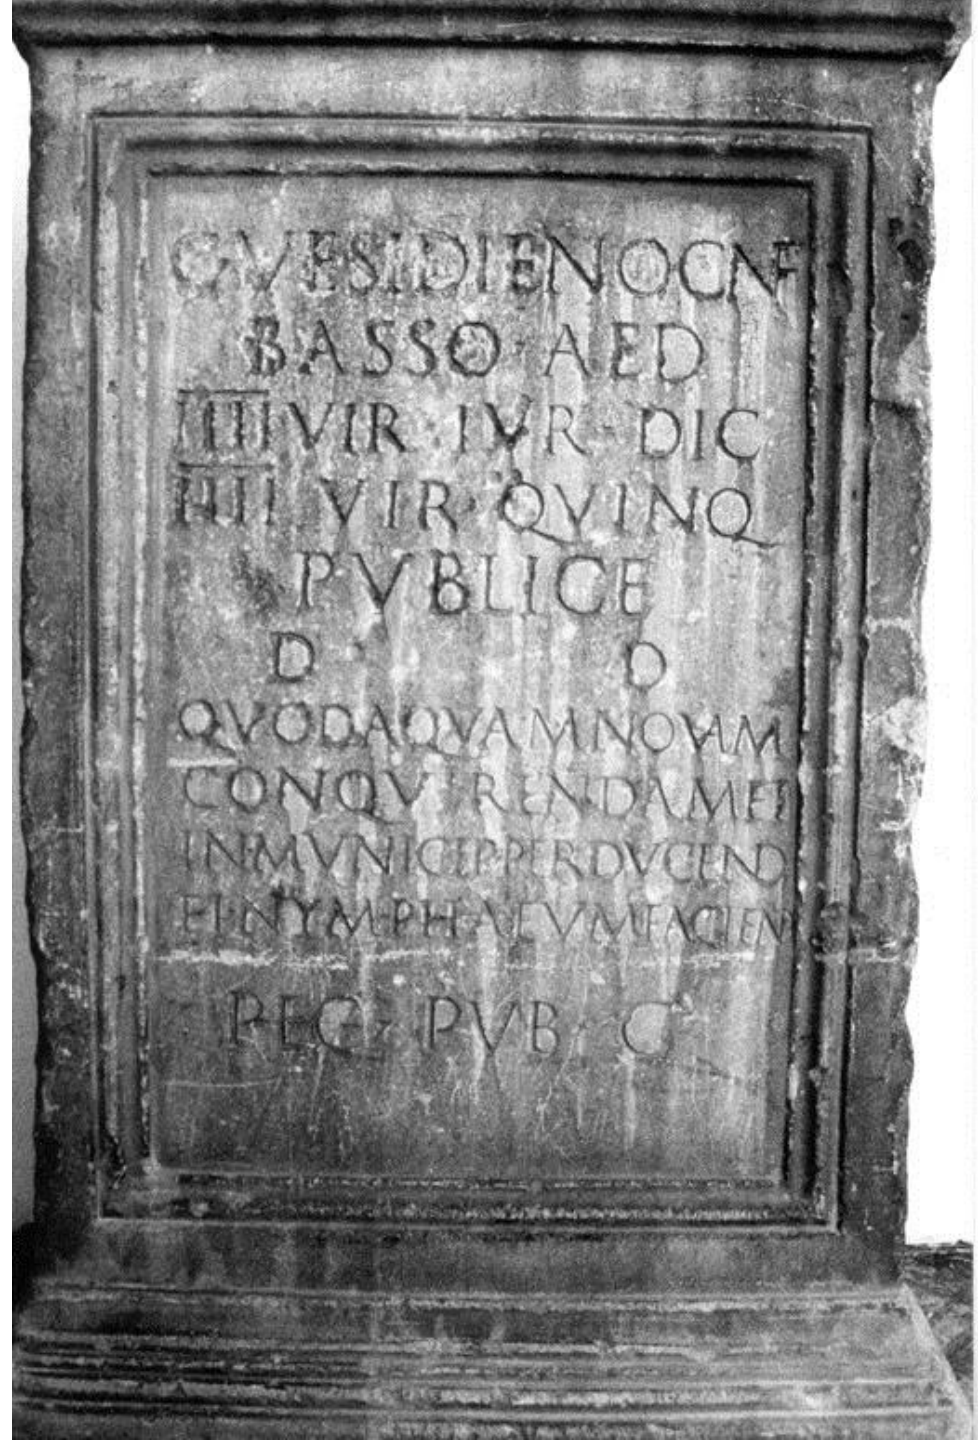 C VESIDIENO CN F
BASSO AED
IIII VIR IVR DIC
IIII VIR QVINQ
PVBLICE
D D
QVOD AQVAM NOVAM
CONQVIRENDAM ET
IN MVNICIP PERDVCEND
ET NYMPHAEVM FACIEN
PEC PVB C